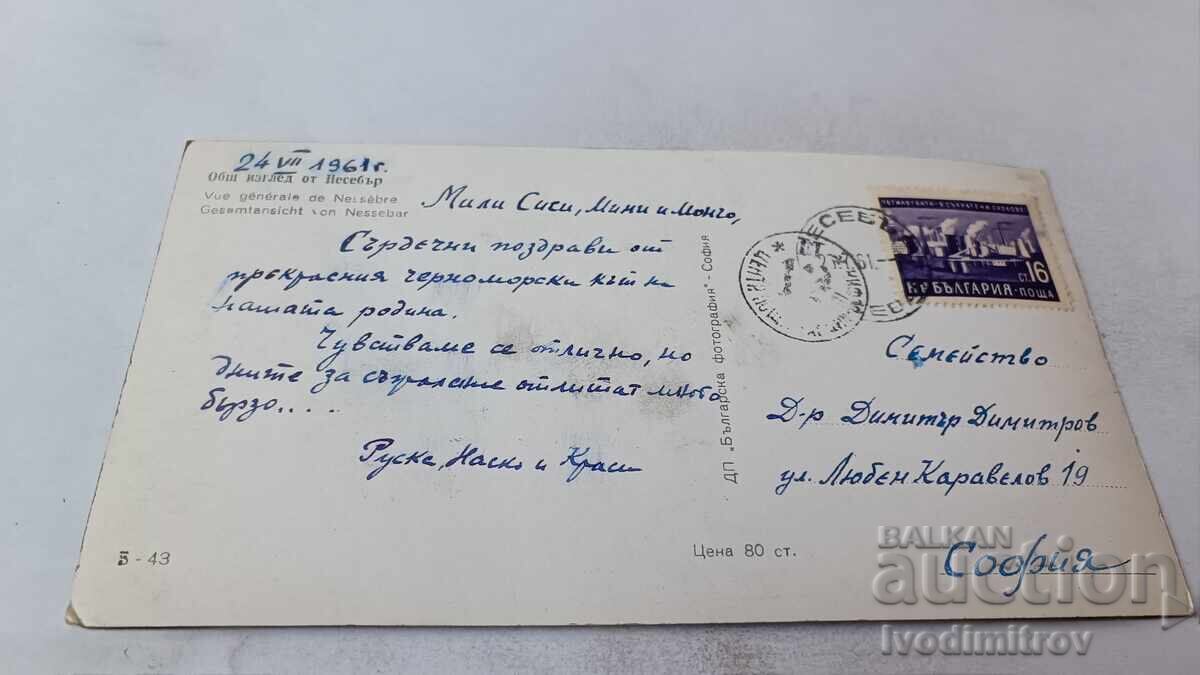 24 VII 1961 г.
Общ изглед от Несебър
Vue générale de Nessèbre
Gesamtansicht von Nessebar
Мили Сиси, Мини и Мончо,
Сърдечни поздрави от
прекрасния черноморски кът на
нашата родина.
Чувстваме се отлично, но
дните за съжаление отлитат много
бързо....
Руска, Наско и Краси
Б - 43
ДП „Българска фотография" - София
Цена 80 ст.
НЕСЕБЪР
61
СТ. 16
НР БЪЛГАРИЯ · ПОЩА
Семейство
Д-р Димитър Димитров
ул. Любен Каравелов 19
София
BALKAN
auction
Ivodimitrov